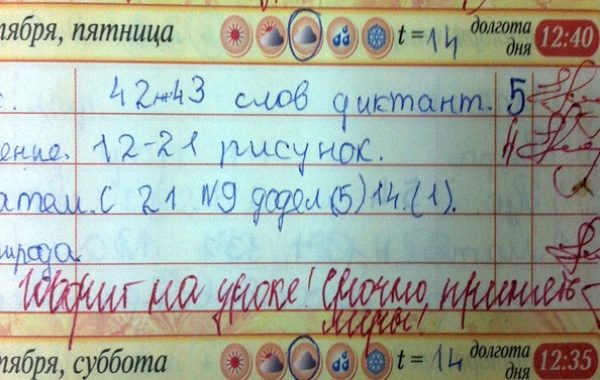 тября, пятница t = 14 долгота дня 12:40
с. 42-43 слов диктант. 5
ение. 12-21 рисунок. 4
атем. С 21 №9 додел(5)14.(1).
природа.
Говорит на уроке! Срочно примете
меры!
тября, суббота t = 14 долгота дня 12:35